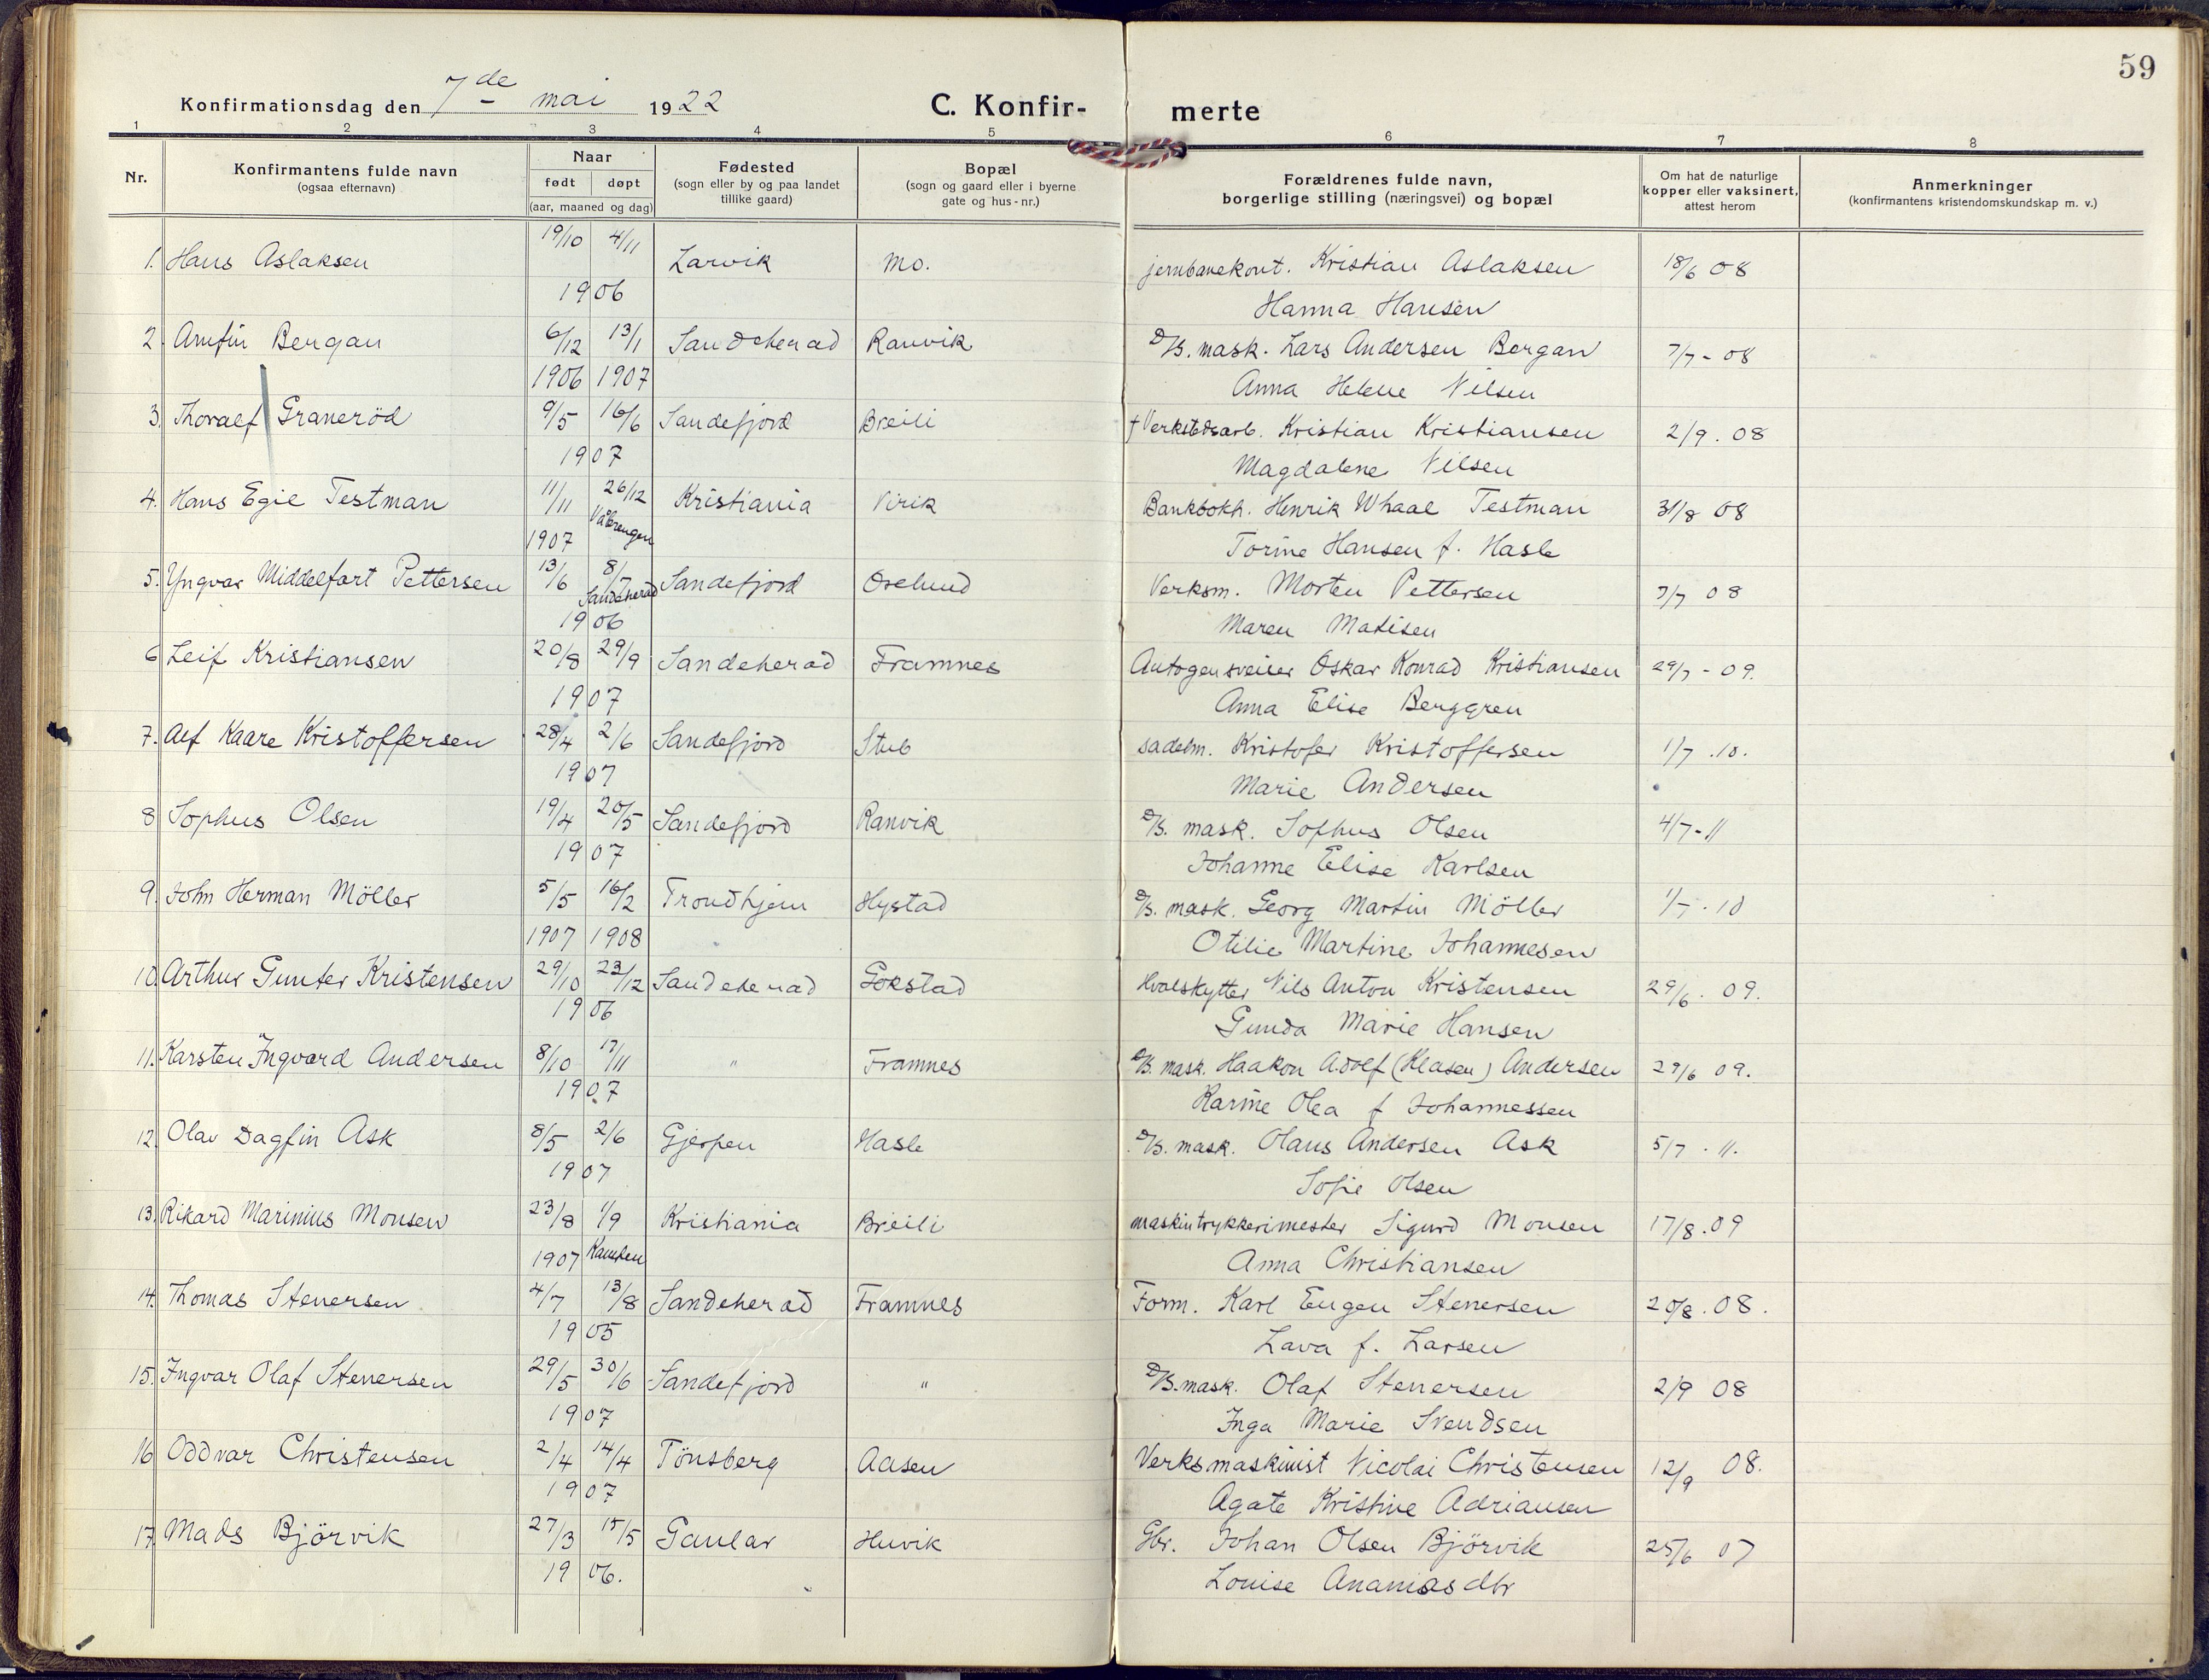 59
Konfirmationsdag den 7de mai 1922 C. Konfir- merte
1 2 3 4 5 6 7 8
Nr. Konfirmantens fulde navn (ogsaa efternavn) Naar født døpt (aar, maaned og dag) Fødested (sogn eller by og paa landet tillike gaard) Bopæl (sogn og gaard eller i byerne gate og hus-nr.) Forældrenes fulde navn, borgerlige stilling (næringsvei) og bopæl Om hat de naturlige kopper eller vaksinert, attest herom Anmerkninger (konfirmantens kristendomskundskap m. v.)
1. Hans Aslaksen 19/10 4/11 Larvik Mo. jernbanekont. Kristian Aslaksen 18/6 08
1906 Hanna Hansen
2. Arnfin Bergan 6/12 13/1 Sandeherad Ranvik D/B. mask. Lars Andersen Bergan 7/7 - 08
1906 1907 Anna Helene Nilsen
3. Thoralf Graneröd 9/5 16/6 Sandefjord Breili † Verkstedsarb. Kristian Kristiansen 2/9. 08
1907 Magdalene Nilsen
4. Hans Egil Testman 11/11 26/12 Kristiania Virik Bankbokh. Henrik Whaal Testman 31/8 08
1907 Vålerengen Torine Hansen f. Hasle
5. Yngvar Middelfart Pettersen 13/6 8/7 Sandefjord Öselund Verksm. Morten Pettersen 7/7 08
Sandeherad
1906 Maren Madisen
6 Leif Kristiansen 20/8 29/9 Sandeherad Framnes Autogensveiser Oskar Konrad Kristiansen 29/7 - 09.
1907 Anna Elise Berggren
7. Alf Kaare Kristoffersen 28/4 2/6 Sandefjord Stub sadelm. Kristofer Kristoffersen 1/7 .10.
1907 Marie Andersen
8 Sophus Olsen 19/4 20/5 Sandefjord Ranvik D/B. mask. Sofhus Olsen 4/7 - 11
1907 Johanne Elise Karlsen
9. John Herman Möller 5/5 16/2 Trondhjem Hystad D/B. mask. Georg Martin Möller 1/7 . 10
1907 1908 Otilie Martine Johannesen
10. Arthur Gunter Kristensen 29/10 23/12 Sandeherad Gokstad Hvalskytter Nils Anton Kristensen 29/6. 09.
1906 Gunda Marie Hansen
11. Karsten Ingvard Andersen 8/10 17/11 " Framnes D/B. mask. Haakon Adolf (Klasen) Andersen 29/6 09.
1907 Karine Olea f Johannessen
12. Olav Dagfin Ask 8/5 2/6 Gjerpen Hasle D/B. mask. Olaus Andersen Ask 5/7 . 11.
1907 Sofie Olsen
13. Rikard Marinius Monsen 23/8 1/9 Kristiania Breili maskintrykkerimester Sigurd Monsen 17/8 . 09
1907 Anna Christiansen
14. Thomas Stenersen 4/7 13/8 Sandeherad Framnes Form. Karl Eugen Stenersen 20/8 . 08.
1905 Lava f. Larsen
15. Ingvar Olaf Stenersen 29/5 30/6 Sandefjord " D/B. mask. Olaf Stenersen 2/9 08
1907 Inga Marie Svendsen
16 Oddvar Christensen 2/4 14/4 Tönsberg Aasen Verksmaskinist Nicolai Christensen 12/9 08.
1907 Agate Kristine Adriansen
17. Mads Björvik 27/3 15/5 Gaular Huvik Gbr. Johan Olsen Björvik 25/6 07
1906. Louise Ananiasdtr